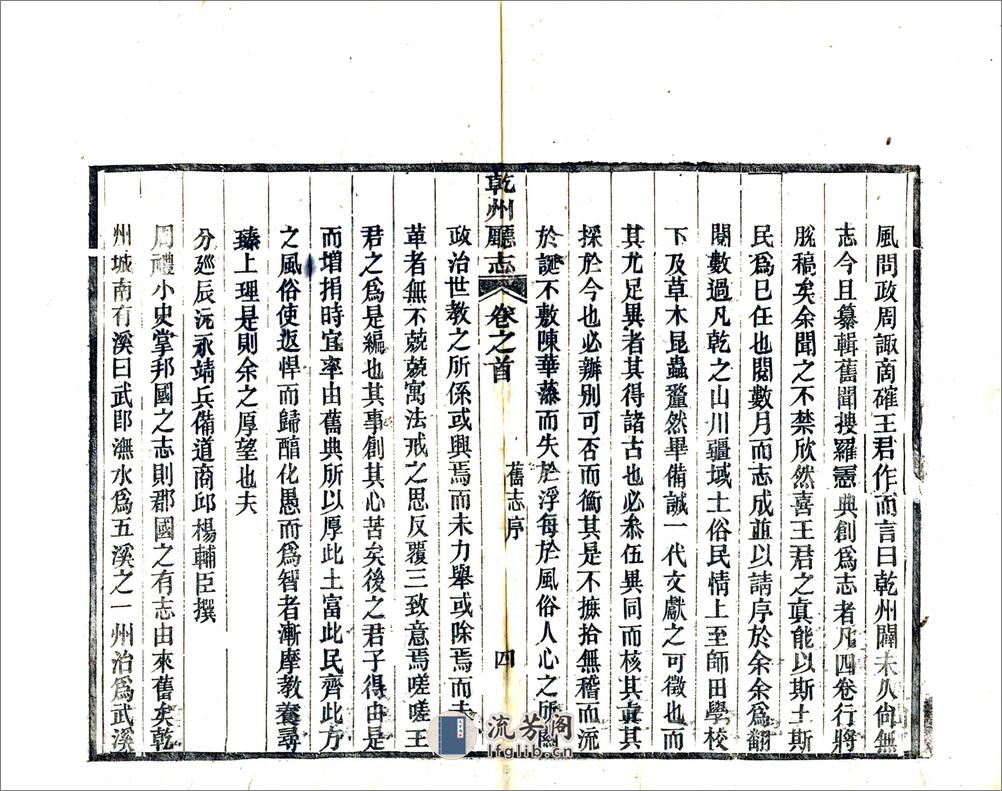 風問政周諏啇確王君作而言曰乾州闢未乆尙無
志今且纂輯舊聞搜羅憲典創爲志者凡四卷行將
脫稿矣余聞之不禁欣然喜王君之眞能以斯土斯
民爲已任也閱數月而志成並以請序於余余爲翻
閱數過凡乾之山川疆域土俗民情上至師田學校
下及草木昆蟲釐然畢備誠一代文獻之可徵也而
其尤足異者其得諸古也必叅伍異同而核其眞其
採於今也必辦別可否而衡其是不摭拾無稽而流
於誕不敷陳華藻而失於浮每於風俗人心之所關
乾州廳志 卷之首 舊志序 四
政治世敎之所係或興焉而未力舉或除焉而未
革者無不兢兢寓法戒之思反覆三致意焉嗟嗟王
君之爲是編也其事創其心苦矣後之君子得由是
而增捐時宜率由舊典所以厚此土富此民齊此方
之風俗使返悍而歸醕化愚而爲智者漸摩教養㝷
臻上理是則余之厚望也夫
分廵辰沅永靖兵備道商邱楊輔臣撰
周禮小史掌邦國之志則郡國之有志由來舊矣乾
州城南有溪曰武卽潕水爲五溪之一州治爲武溪
流芳阁
lfglib.cn